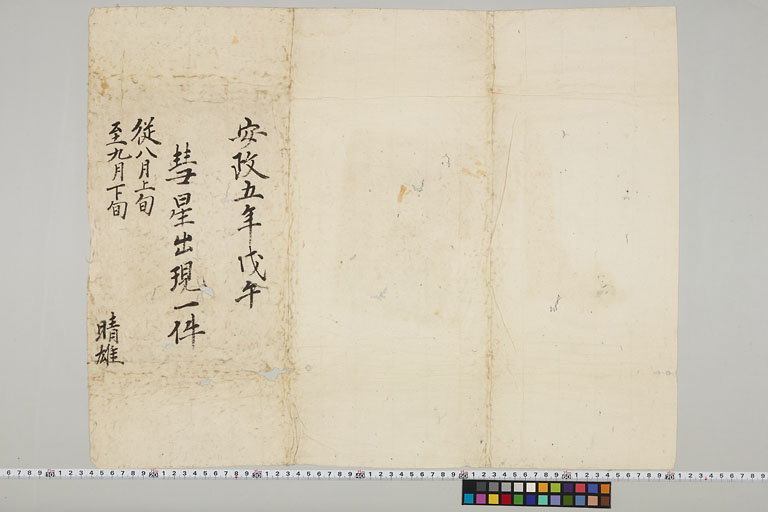 安政五年戊午
彗星出現一件
従八月上旬
至九月下旬
晴雄